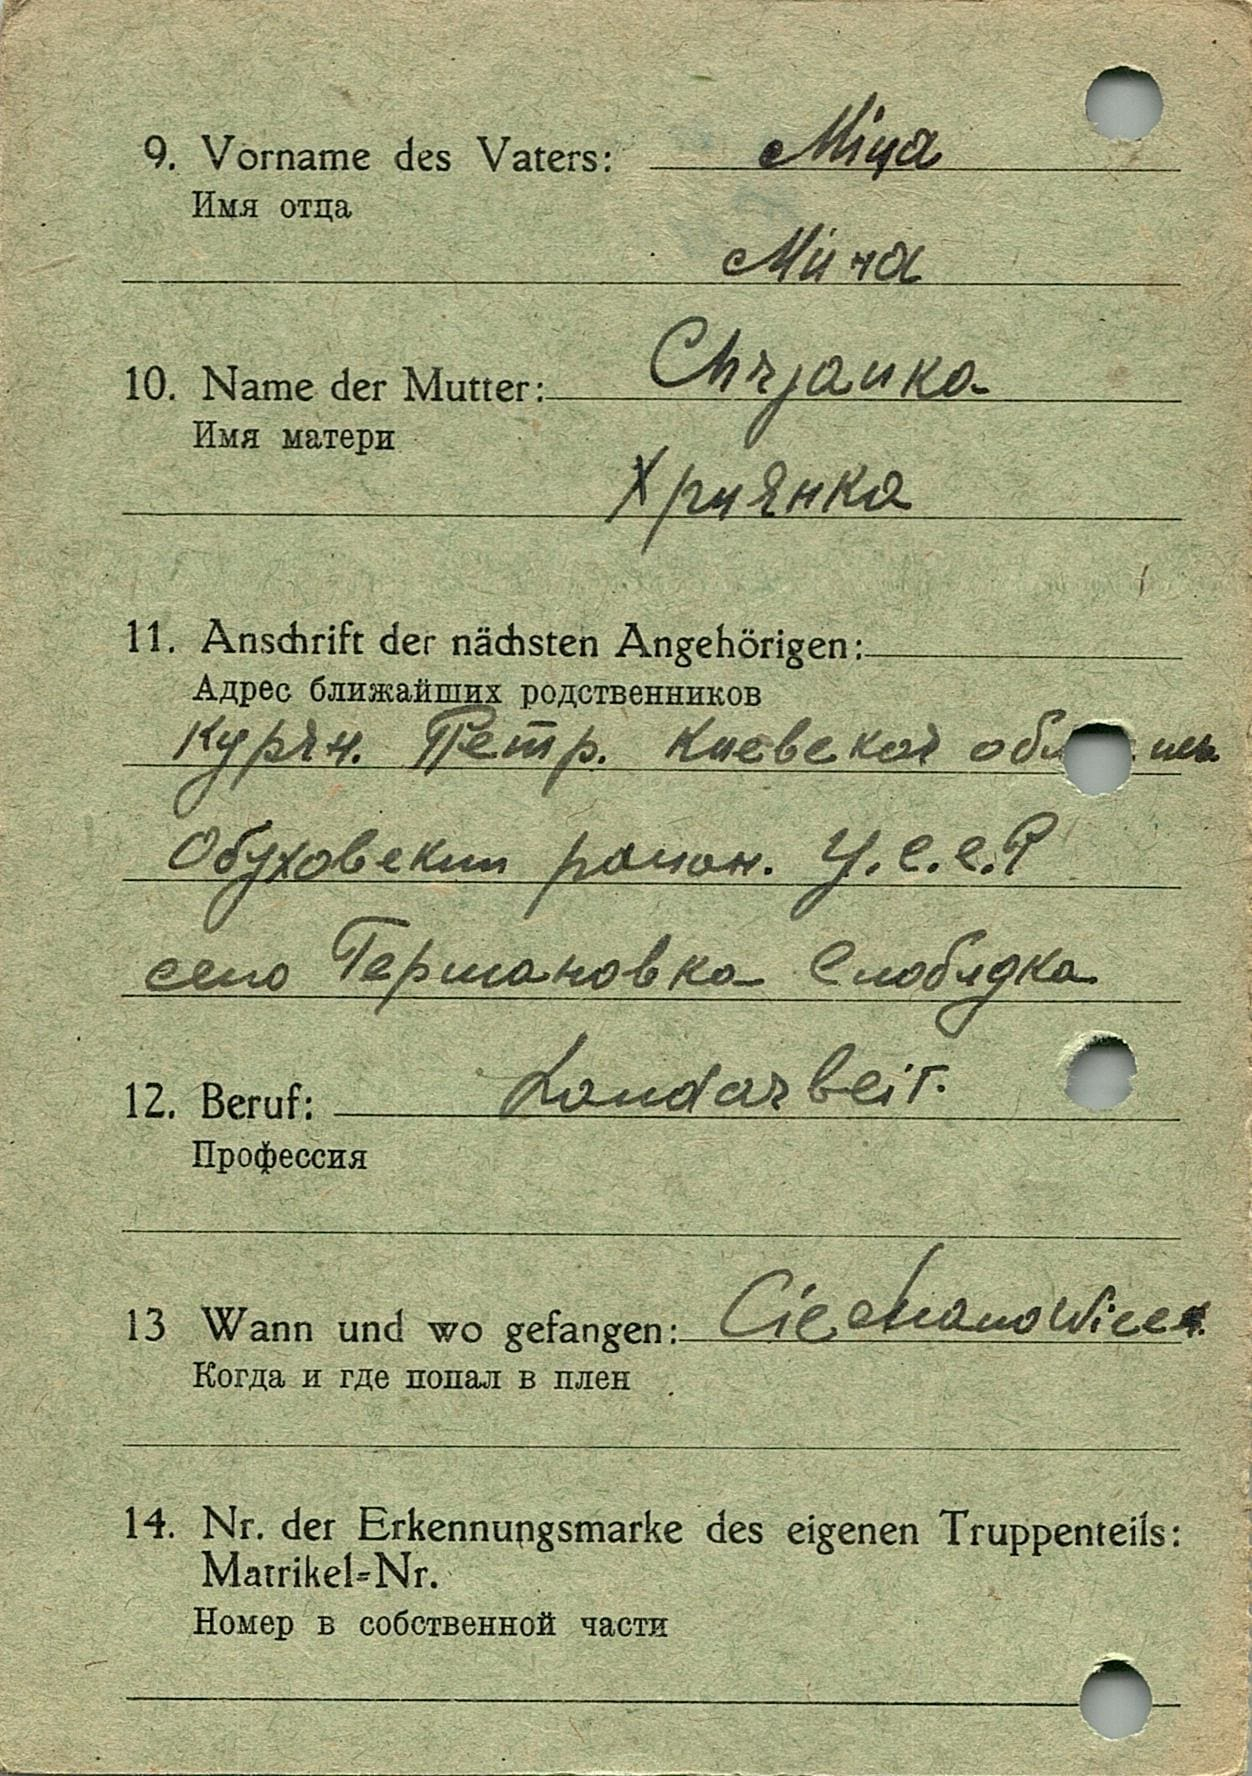 9. Vorname des Vaters: Miya
Имя отца
Мина
10. Name der Mutter: Chrjanka
Имя матери
Хриянка
11. Anschrift der nächsten Angehörigen:
Адрес ближайших родственников
Петр. Киевской
Обуховский район. У.С.С.Р
село Германовка Слобидка
12. Beruf: Landarbeit.
Профессия
13 Wann und wo gefangen:
Когда и где попал в плен
14. Nr. der Erkennungsmarke des eigenen Truppenteils:
Matrikel-Nr.
Номер в собственной части